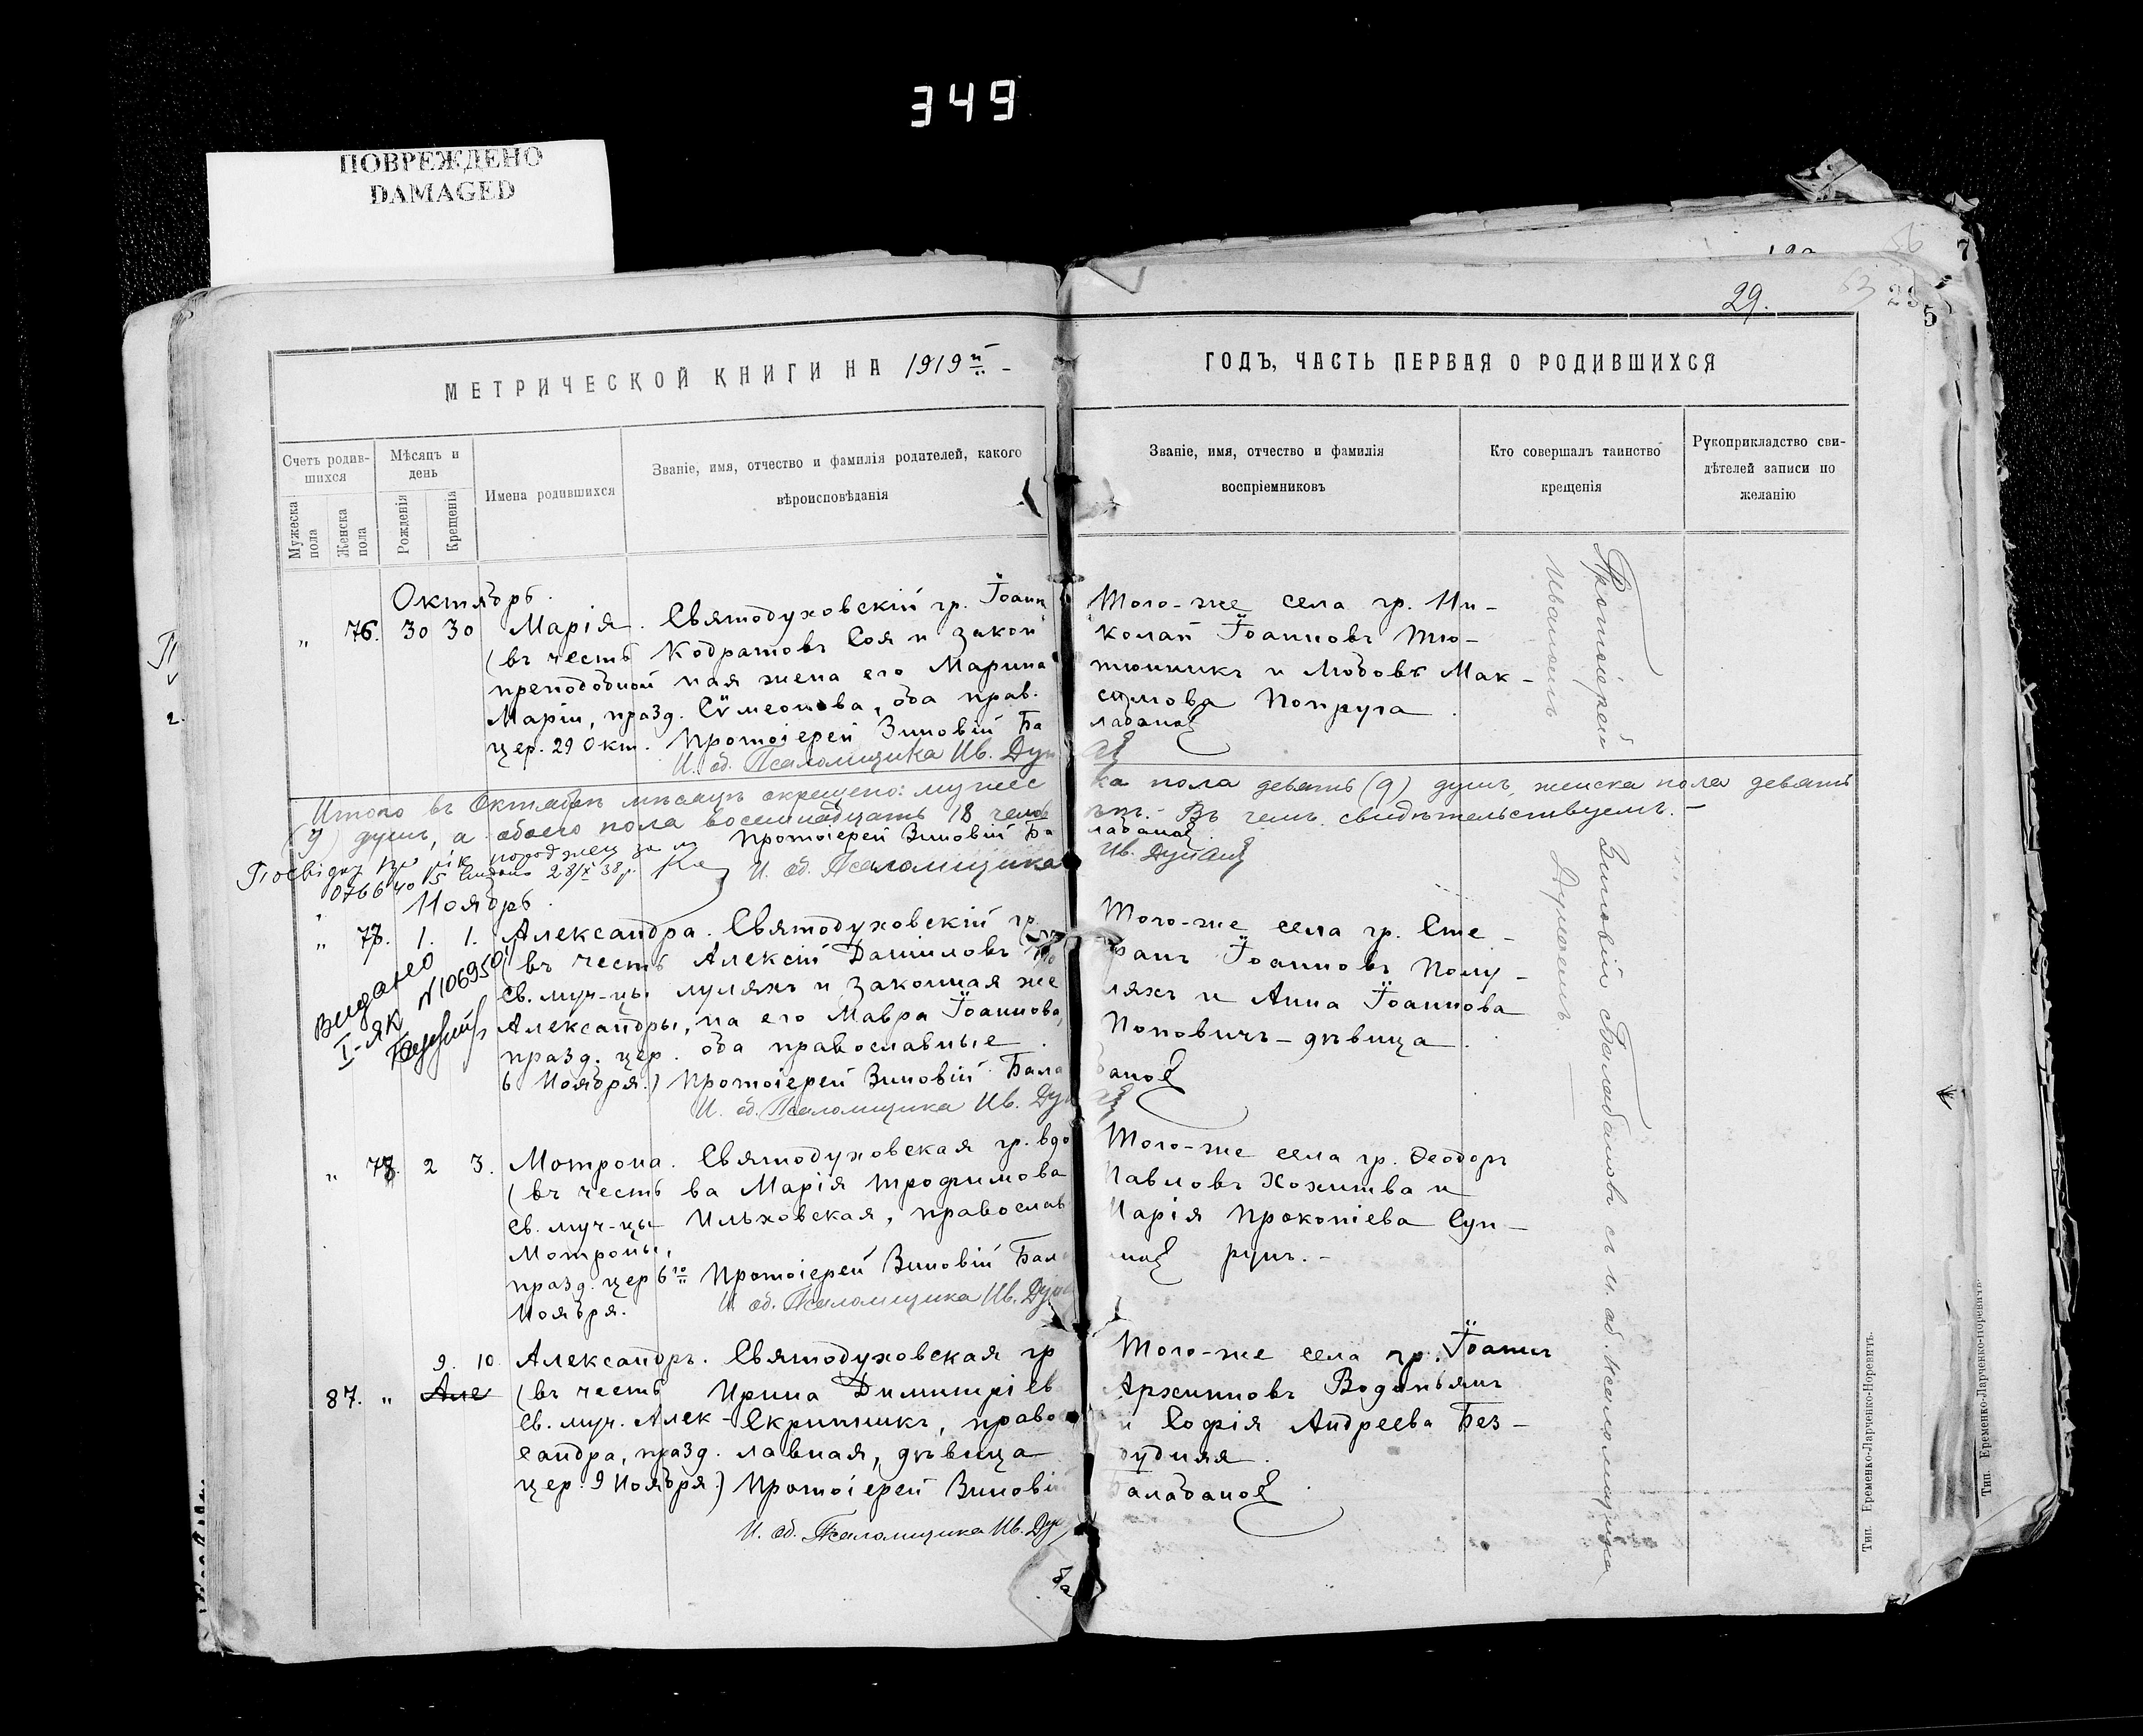 349
ПОВРЕЖДЕНО
DAMAGED
29.
МЕТРИЧЕСКОЙ КНИГИ НА 1919й
ГОДЪ, ЧАСТЬ ПЕРВАЯ О РОДИВШИХСЯ
Счетъ родив-
шихся
Мужеска пола
Женска пола
Мѣсяцъ и день
Рожденія
Крещенія
Имена родившихся
Званіе, имя, отчество и фамилія родителей, какого
вѣроисповѣданія
Званіе, имя, отчество и фамилія
воспріемниковъ
Кто совершалъ таинство
крещенія
Рукоприкладство сви-
дѣтелей записи по
желанію
Октябрь.
„ 76. 30 30 Марія.
(въ честь
преподобной
Маріи, празд.
цер. 29 Окт.
Святодуховскій гр. Іоанн
Кодратовъ Соя и закон
ная жена его Марина
Сѵмеонова, оба прав.
Протоіерей Зиновій Ба
И. об. Псаломщика Ив. Дун
Того-же села гр. Ни-
колай Іоанновъ Тю-
тюнникъ и Любовь Мак-
симова Попруга.
лабановъ
Итого въ Октябрѣ мѣсяцѣ окрещено: мужес
ка пола девять (9) душъ, женска пола девять
(9) душъ, а обоего пола восемнадцать 18 челов
ѣкъ. Въ чемъ свидѣтельствуемъ.-
Протоіерей Зиновій Ба
лабановъ
И. об. Псаломщика
Ив.
28/X 38 р.
Ноябрь.
„ 77. 1. 1. Александра.
(въ честь
св. муч-цы
Александры,
празд. цер.
6 Ноября.)
Святодуховскій гр.
Алексій Даніиловъ По
луляхъ и законная же
на его Мавра Іоаннова,
оба православные.
Протоіерей Зиновій Бала
И. об. Псаломщика Ив. Дун
Того-же села гр. Сте-
фанъ Іоанновъ Полу-
ляхъ и Анна Іоаннова
Поповичъ-дѣвица.
бановъ
Видано
I-ЯК №106950
„ 78. 2 3. Мотрона.
(въ честь
св. муч-цы
Мотроны,
празд. цер 6го
Ноября.
Святодуховская гр. вдо
ва Марія Трофимова
Ильховская, православ
Протоіерей Зиновій Бал
И. об. Псаломщика Ив. Дун
Того-же села гр. Ѳеодоръ
Павловъ Хохитва и
Марія Прокопіева Суп-
рунъ.-
87. „ 9. 10. Александръ.
Але
(въ честь
св. муч. Алек-
сандра, празд.
цер. 9 Ноября.)
Святодуховская гр
Ирина Димитріев
Скрипникъ, правос
лавная, дѣвица
Протоіерей Зиновій
И. об. Псаломщика Ив. Дун
Того-же села гр. Іоаннъ
Архиповъ Водопьянъ
и Софія Андреева Без-
будняя.
Балабановъ
Протоіерей Зиновій Балабановъ съ и. об. псаломщика
Тип. Еременко-Ларченко-Норевичъ.
Тип. Еременко-Ларченко-Норевичъ.